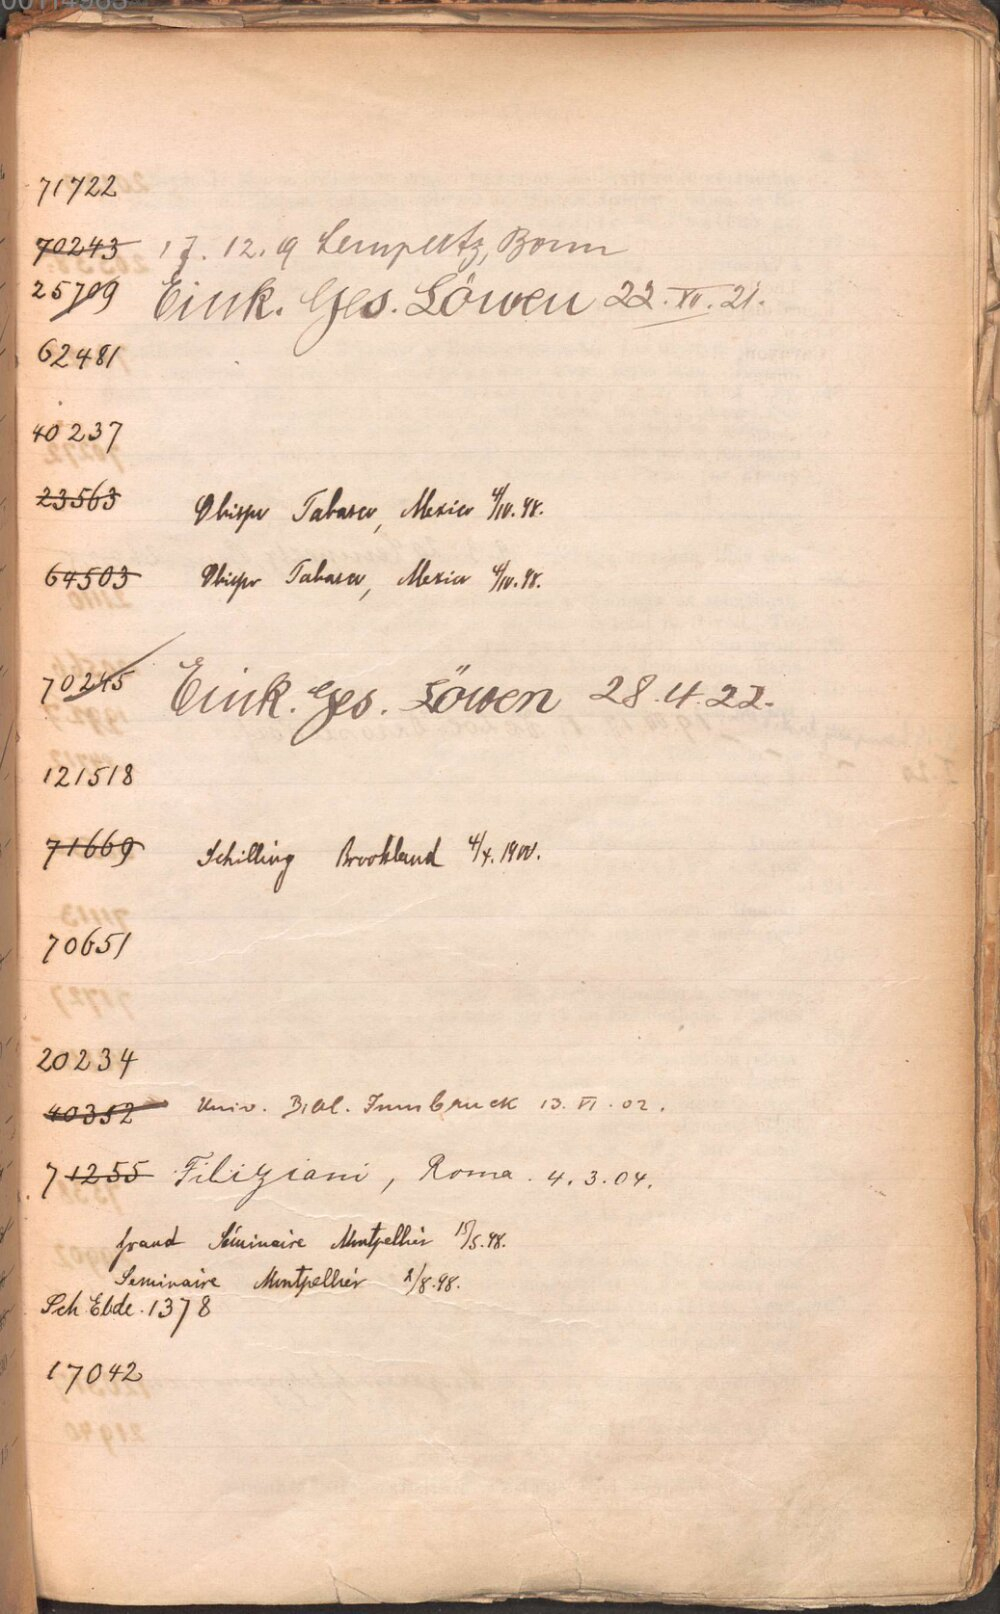 71722
70243 17. 12. 9 Lempertz, Bonn
25709 Eink. Ges. Löwen 22. XII. 21.
62481
40237
23563 Obispo Tabasco, Mexico 4/IV. 98.
64503 Obispo Tabasco, Mexico 4/IV. 98.
70245 Eink. Ges. Löwen 28. 4. 22.
121518
71669 Schilling Brookland 4/X. 1900.
70651
20234
40352 Univ. Bibl. Innsbruck 13. VI. 02.
71255 Filiziani, Roma. 4. 3. 04.
Grand Séminaire Montpellier 15/5. 98.
Seminaire Montpellier 2/8. 98.
Sch Ebde. 1378
17042